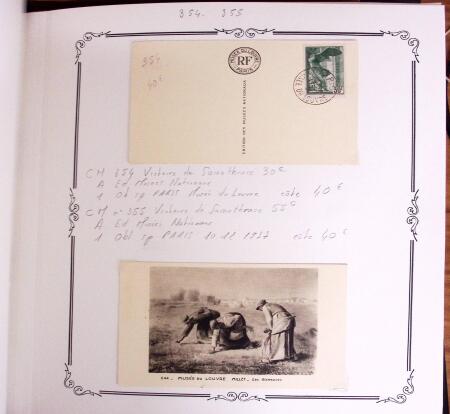 354. 355
354
40€
MUSÉE DU LOUVRE
RF
PARIS
EDITION DES MUSÉES NATIONAUX
CM 354 Victoire de Samothrace 30c
A Ed Musées Nationaux
1 Obl sp PARIS Musée du Louvre cote 40€
CM n° 355 Victoire de Samothrace 55c
A Ed Musées Nationaux
1 Obl sp PARIS 1937 cote 40€
MUSÉE DU LOUVRE MILLET. Les Glaneuses